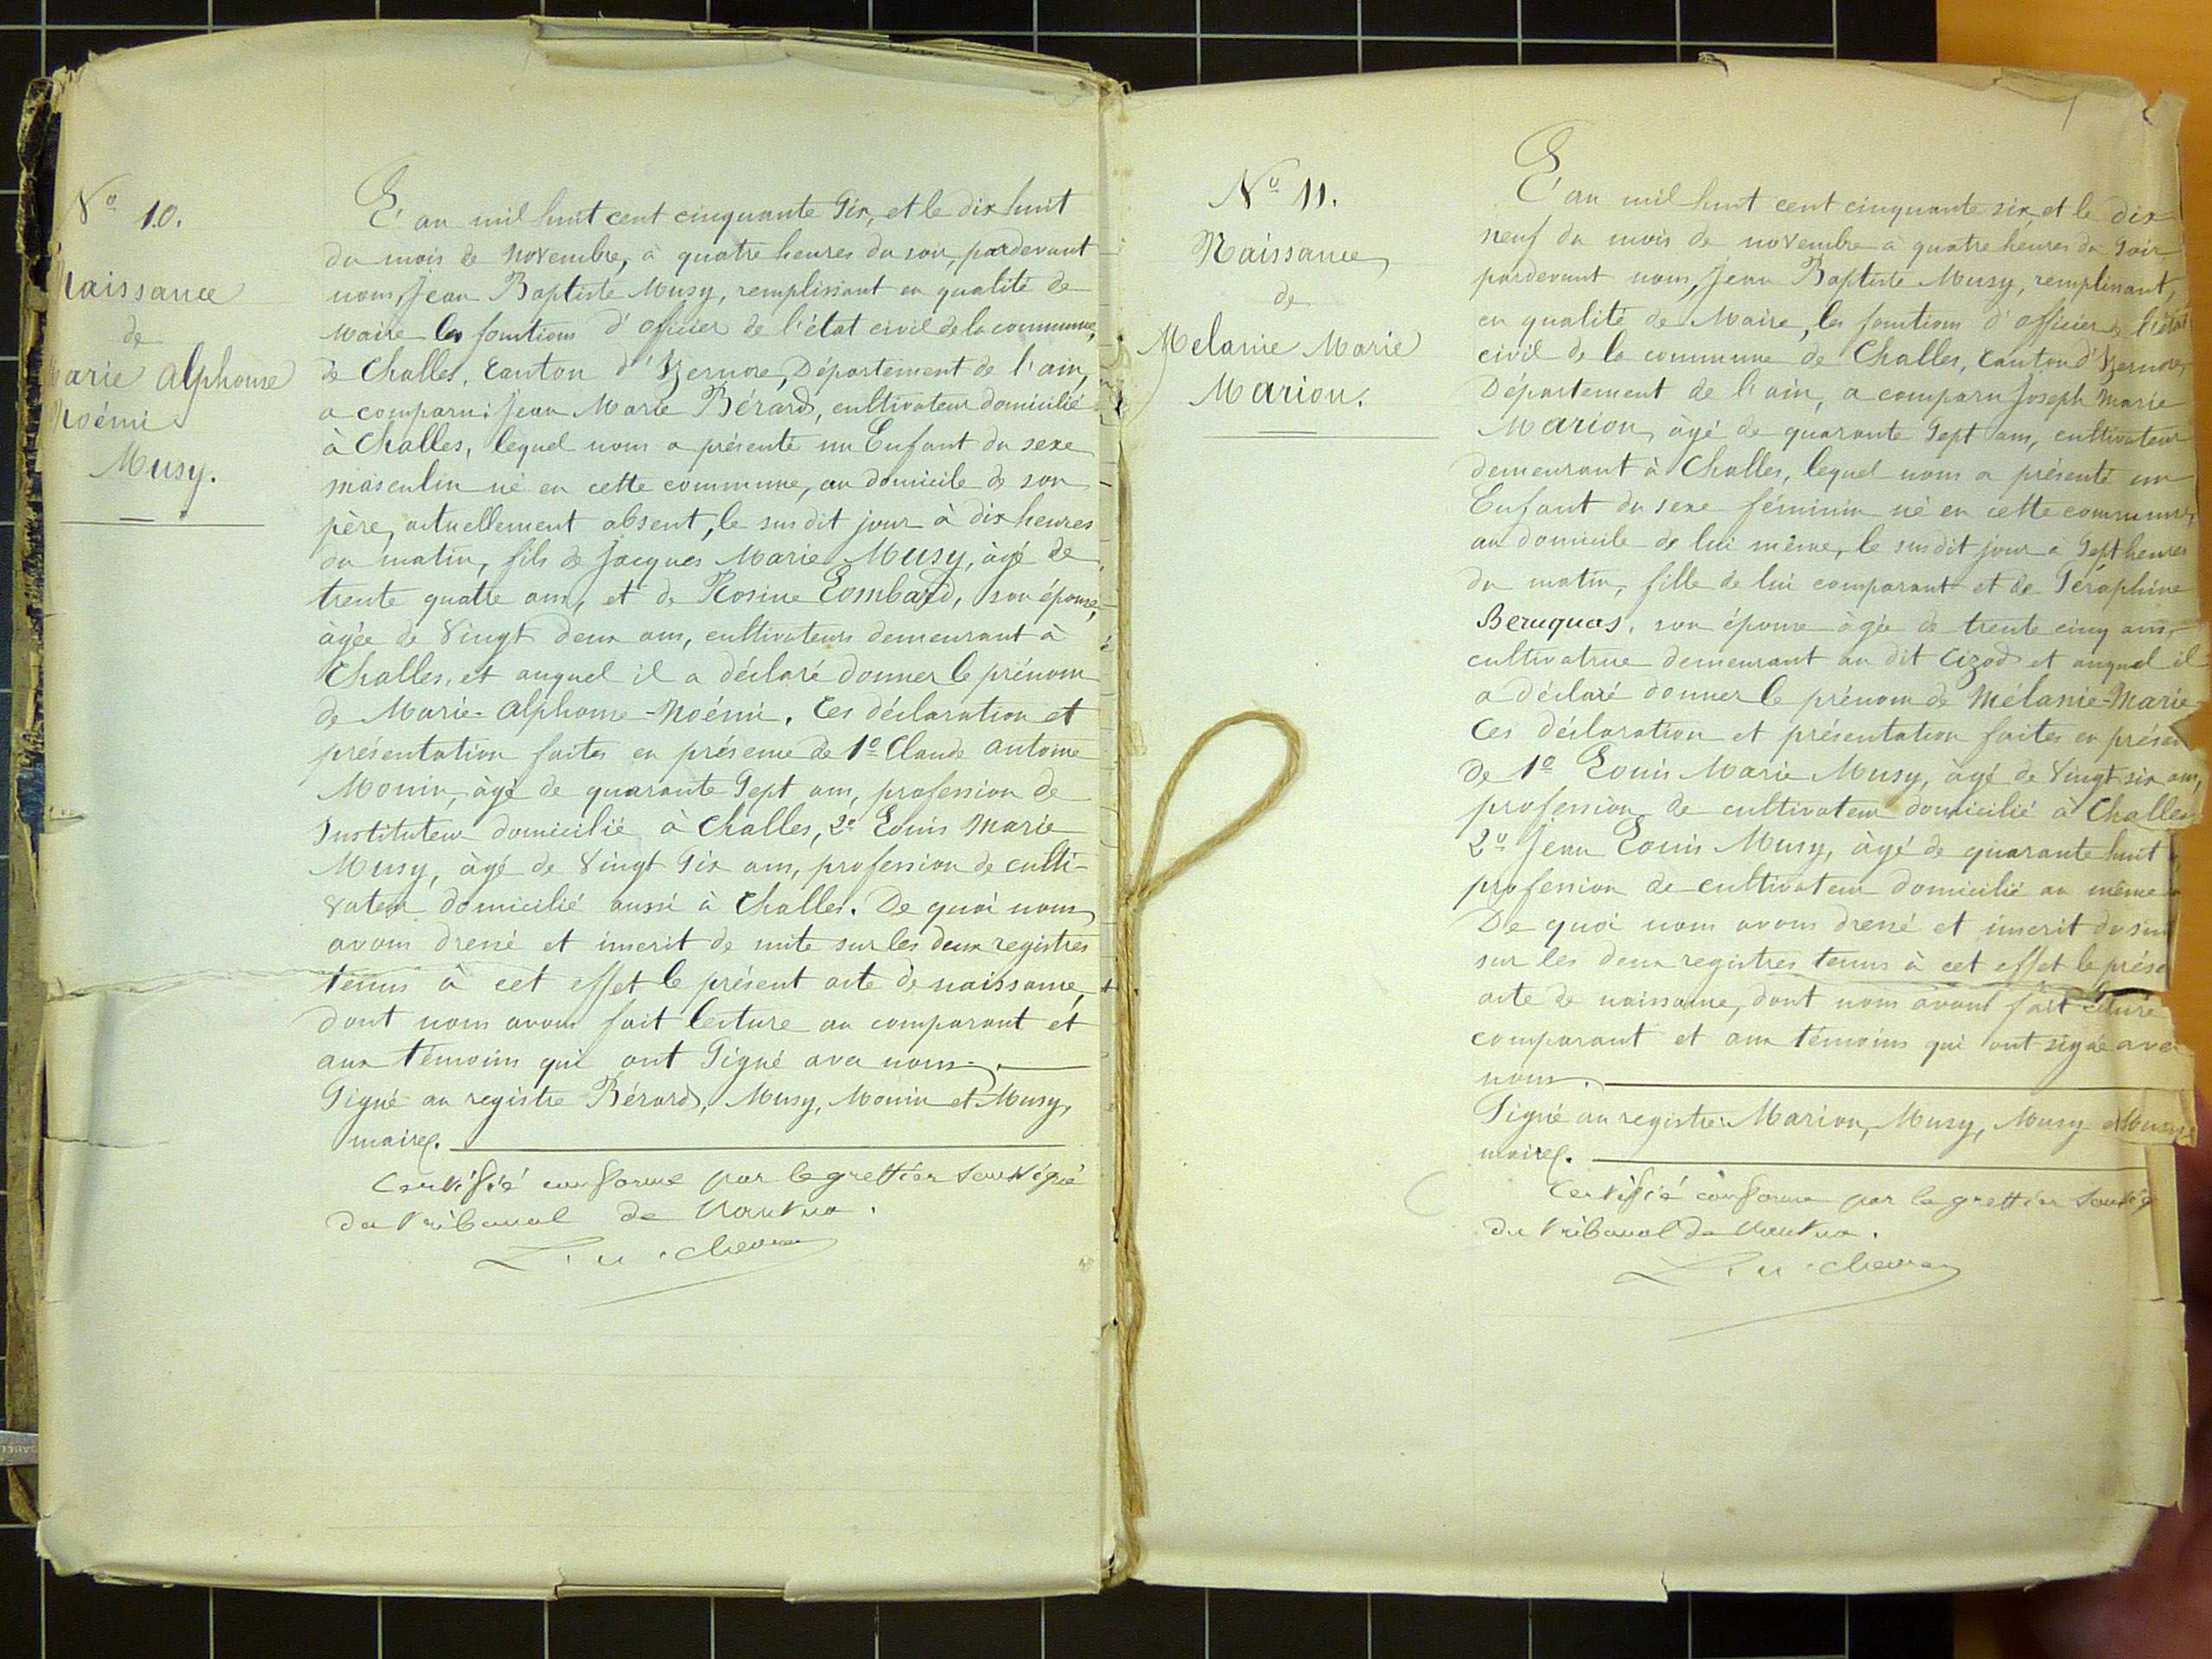 No 10.
Naissance
de
Marie Alphonse
Noémi
Musy.
L'an mil huit cent cinquante six, et le dix huit
du mois de novembre, à quatre heures du soir, pardevant
nous, Jean Baptiste Musy, remplissant en qualité de
Maire les fonctions d'officier de l'état civil de la commune,
de Challes, Canton d'Izernore, Département de l'ain,
a comparu: Jean Marie Bérard, cultivateur domicilié
à Challes, lequel nous a présenté un Enfant du sexe
masculin né en cette commune, au domicile de son
père, actuellement absent, le susdit jour à dix heures
du matin, fils de Jacques Marie Musy, âgé de
trente quatre ans, et de Rosine Lombard, son épouse,
âgée de vingt deux ans, cultivateurs demeurant à
Challes, et auquel il a déclaré donner le prénom
de Marie-Alphonse-Noémi. Ces déclaration et
présentation faites en présence de 1o Claude antoine
Monin, âgé de quarante sept ans, profession de
Instituteur domicilié à Challes, 2o Louis Marie
Musy, âgé de vingt six ans, profession de culti-
vateur domicilié aussi à Challes. De quoi nous
avons dressé et inscrit de suite sur les deux registres
tenus à cet effet le présent acte de naissance,
dont nous avons fait lecture au comparant et
aux témoins qui ont signé avec nous.
Signé au registre Bérard, Musy, Monin et Musy,
maire.
Certifié conforme par le greffier soussigné
du tribunal de Nantua.
No 11.
Naissance
de
Melanie Marie
Marion.
L'an mil huit cent cinquante six, et le dix=
neuf du mois de novembre a quatre heures du soir
pardevant nous, Jean Baptiste Musy, remplissant,
en qualité de Maire, les fonctions d'officier de l'état
civil de la commune de Challes, canton d'Izernore,
Département de l'ain, a comparu Joseph Marie
Marion, âgé de quarante sept ans, cultivateur
demeurant à Challes, lequel nous a présenté un
Enfant du sexe féminin né en cette commune,
au domicile de lui même, le susdit jour à sept heures
du matin, fille de lui comparant et de Séraphine
Beruquas, son épouse âgée de trente cinq ans,
cultivatrice demeurant au dit Cizod et auquel il
a déclaré donner le prénom de Mélanie-Marie
Ces déclaration et présentation faites en présen
de 1o Louis Marie Musy, âgé de vingt six ans,
profession de cultivateur domicilié à Challes
2o Jean Louis Musy, âgé de quarante huit
profession de cultivateur domicilié au même
De quoi nous avons dressé et inscrit de sui
sur les deux registres tenus à cet effet le prése
acte de naissance, dont nous avons fait lecture
comparant et aux témoins qui ont signé avec
nous.
Signé au registre Marion, Musy, Musy et Musy
maire.
Certifié conforme par le greffier soussig
du tribunal de Nantua.